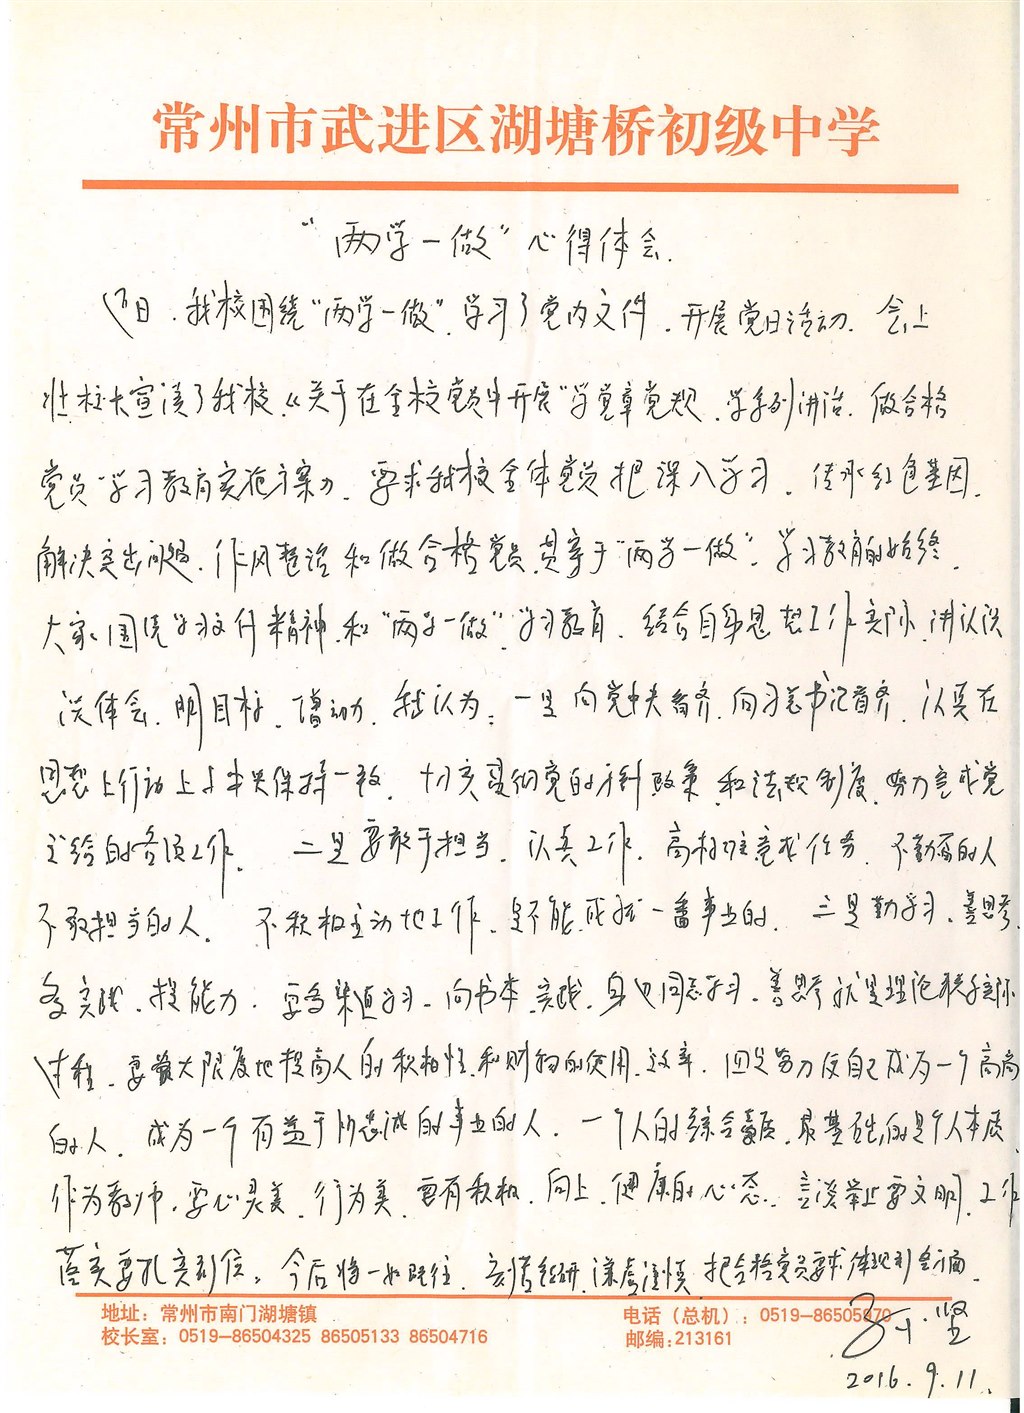 常州市武进区湖塘桥初级中学
“两学一做”心得体会.
近日,我校围绕“两学一做”,学习了党内文件,开展党日活动.会上
杜校长宣读了我校《关于在全校党员中开展“学党章党规、学系列讲话、做合格
党员”学习教育实施方案》,要求我校全体党员把深入学习,传承红色基因,
解决突出问题,作风整治和做合格党员贯穿于“两学一做”学习教育的始终.
大家围绕学习文件精神和“两学一做”学习教育,结合自身思想工作实际,讲认识
谈体会,明目标,话行动.我认为:一是向党中央看齐,向习总书记看齐,认真在
思想上行动上与中央保持一致,切实贯彻党的方针政策和法规制度,努力完成党
交给的各项工作. 二是要敢于担当,认真工作,高标准完成任务,不勤奋的人
不敢担当的人,不积极主动地工作,是不能成就一番事业的. 三是勤学习,善思考,
多实践,提能力.要多渠道学习,向书本,实践,身边同志学习.善思考就是理论联系实际
过程,要最大限度地提高人的积极性和财物的使用效率.四是努力使自己成为一个高尚
的人,成为一个有益于所忠诚的事业的人.一个人的综合素质,最基础的是个人本质,
作为教师,要心灵美,行为美,要有积极,向上,健康的心态,言谈举止要文明,工作
落实要扎实到位。今后将一如既往,刻苦钻研,谦虚谨慎,把合格党员要求体现到全方面.
地址:常州市南门湖塘镇 电话(总机):0519-86505870
校长室:0519-86504325 86505133 86504716 邮编:213161
坚
2016.9.11.